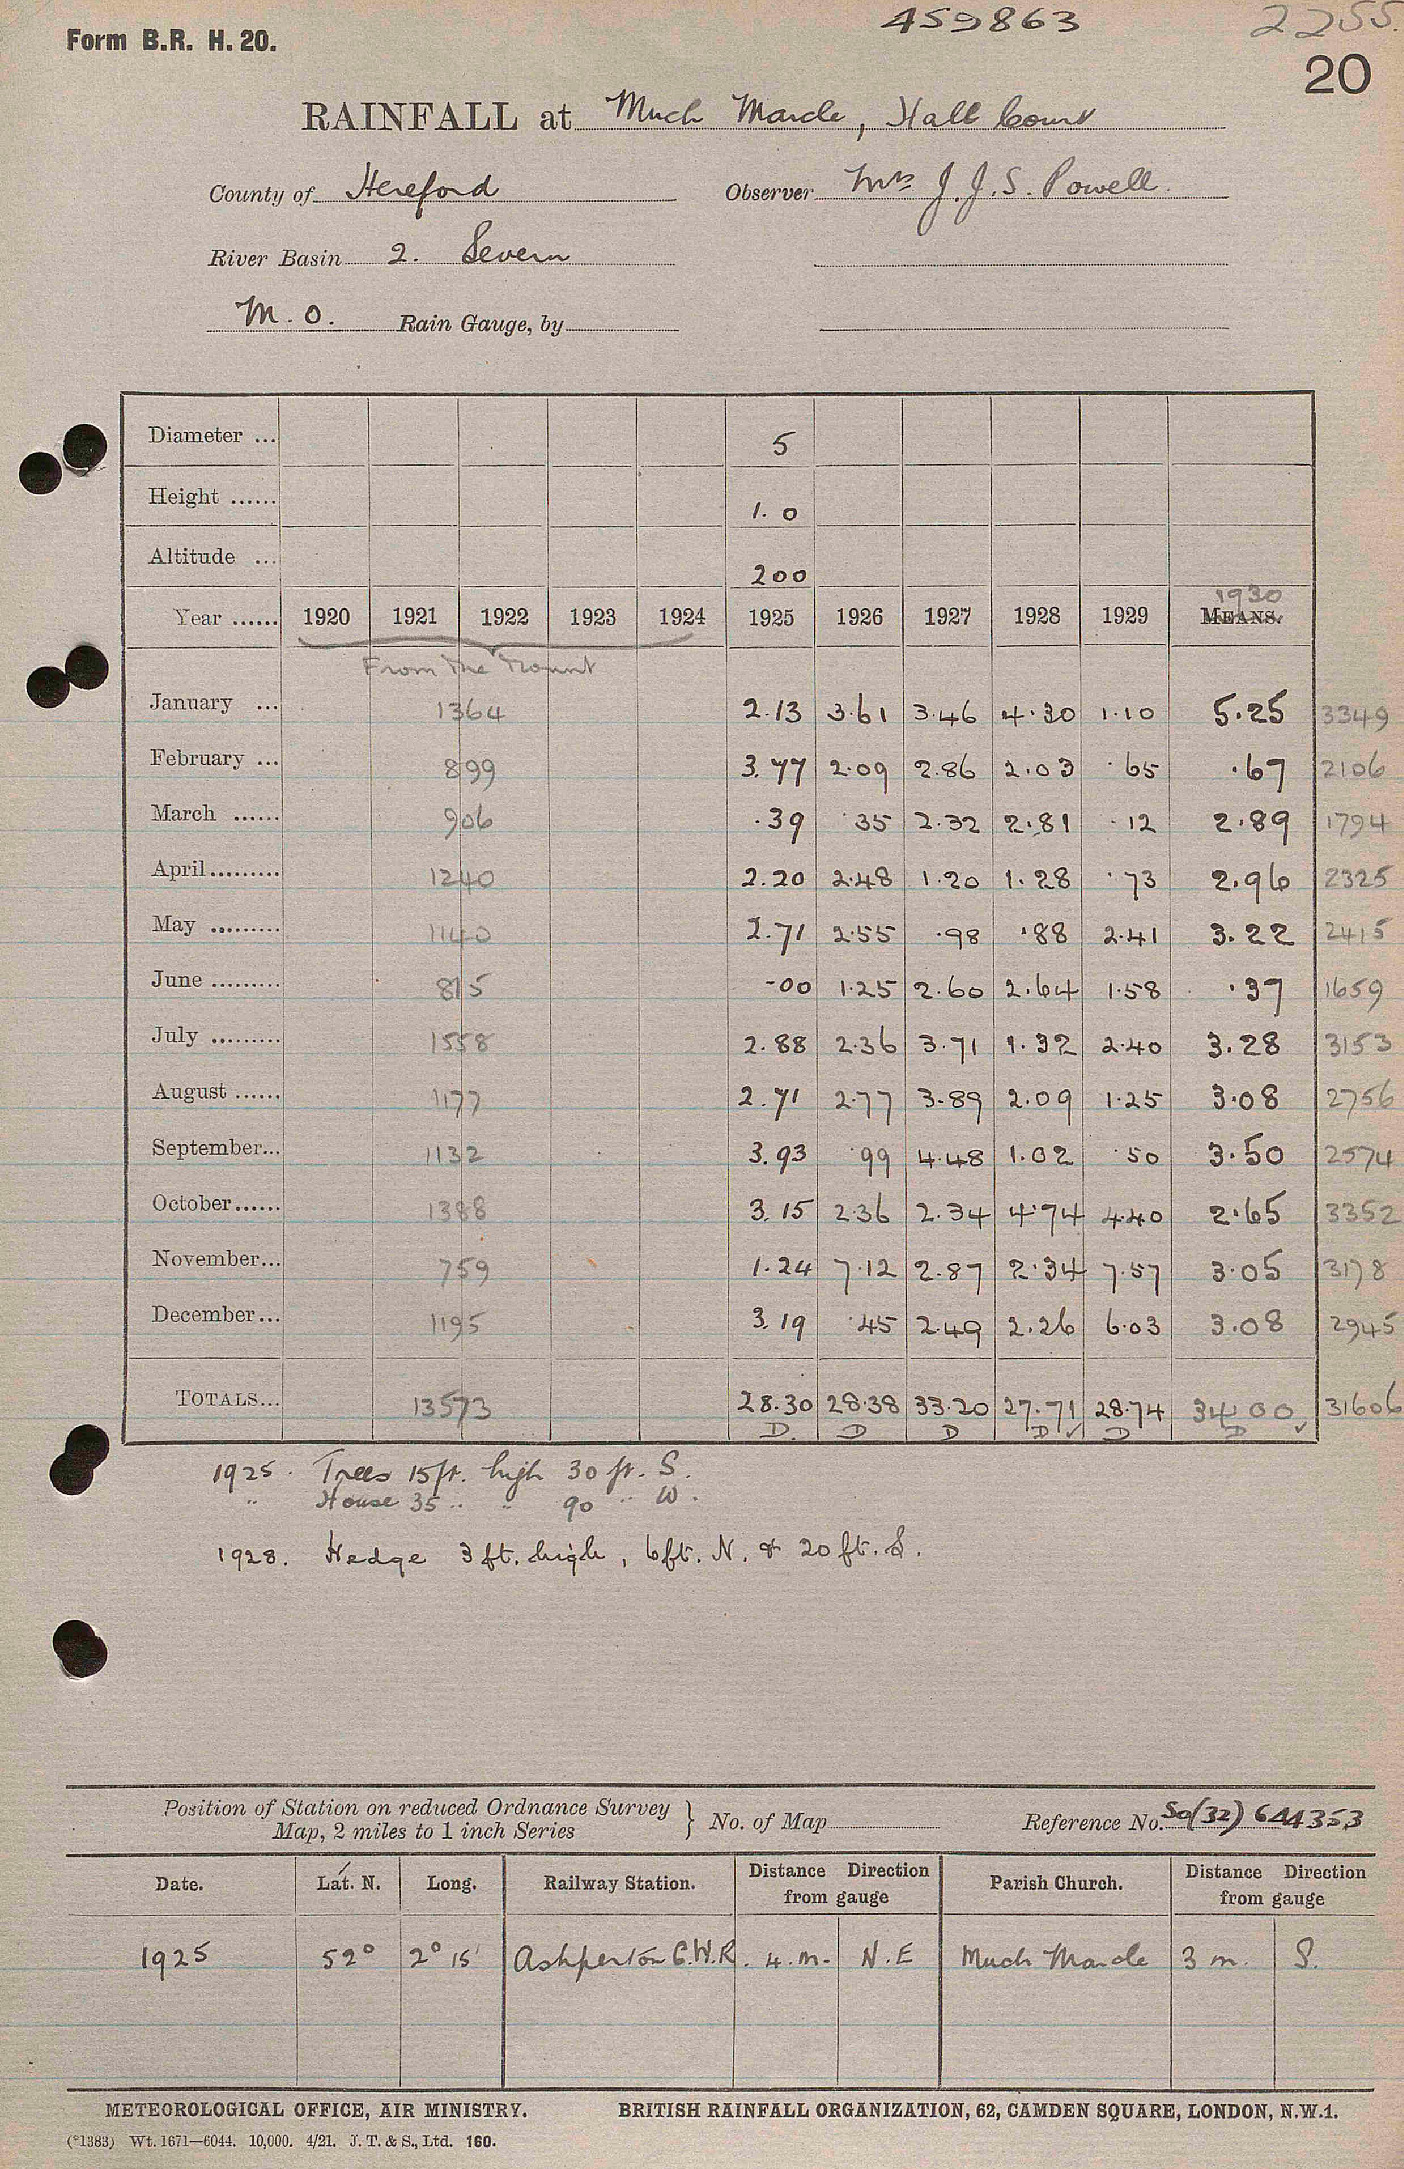 459863 2255.
Form B.R. H. 20.
20
RAINFALL at Much Marcle, Hall Court
County of Hereford Observer Mrs J. J. S. Powell.
River Basin 2. Severn
M.O. Rain Gauge, by
Diameter ... 5
Height ...... 1.0
Altitude ... 200
1930
Year ...... 1920 1921 1922 1923 1924 1925 1926 1927 1928 1929 MEANS.
From The Mount
January ... 1364 2.13 3.61 3.46 4.30 1.10 5.25 3349
February ... 899 3.77 2.09 2.86 2.03 .65 .67 2106
March ...... 906 .39 .35 2.32 2.81 .12 2.89 1794
April ......... 1240 2.20 2.48 1.20 1.28 .73 2.96 2325
May ......... 1140 2.71 2.55 .98 .88 2.41 3.22 2415
June ......... 815 -00 1.25 2.60 2.64 1.58 .37 1659
July ......... 1558 2.88 2.36 3.71 1.32 2.40 3.28 3153
August ...... 1177 2.71 2.77 3.89 2.09 1.25 3.08 2756
September... 1132 3.93 .99 4.48 1.02 .50 3.50 2574
October...... 1388 3.15 2.36 2.34 4.74 4.40 2.65 3352
November... 759 1.24 7.12 2.87 2.34 7.57 3.05 3178
December... 1195 3.19 .45 2.49 2.26 6.03 3.08 2945
TOTALS... 13573 28.30 28.38 33.20 27.71 28.74 34.00 31606
D. D D D ✓ D D ✓
1925. Trees 15ft. high 30 ft. S.
" House 35 " " 90 " W.
1928. Hedge 3 ft. high, 6ft. N. & 20 ft. S.
Position of Station on reduced Ordnance Survey
Map, 2 miles to 1 inch Series } No. of Map Reference No. SO(32) 644353
Date. Lat. N. Long. Railway Station. Distance Direction from gauge Parish Church. Distance Direction from gauge
1925 52° 2° 15' Ashperton G.W.R. 4. m. N.E Much Marcle 3 m. S.
METEOROLOGICAL OFFICE, AIR MINISTRY. BRITISH RAINFALL ORGANIZATION, 62, CAMDEN SQUARE, LONDON, N.W.1.
(*1383) Wt. 1671—6044. 10,000. 4/21. J. T. & S., Ltd. 160.